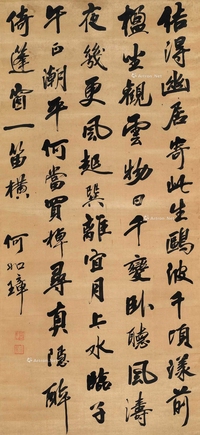 佔得幽居寄此生鷗波千頃漾前
楹坐觀雲物日千變臥聽風濤
夜幾更風起巽離宜月上水臨子
午正潮平何當買棹尋真隱醉
倚蓬窗一笛橫
何如璋